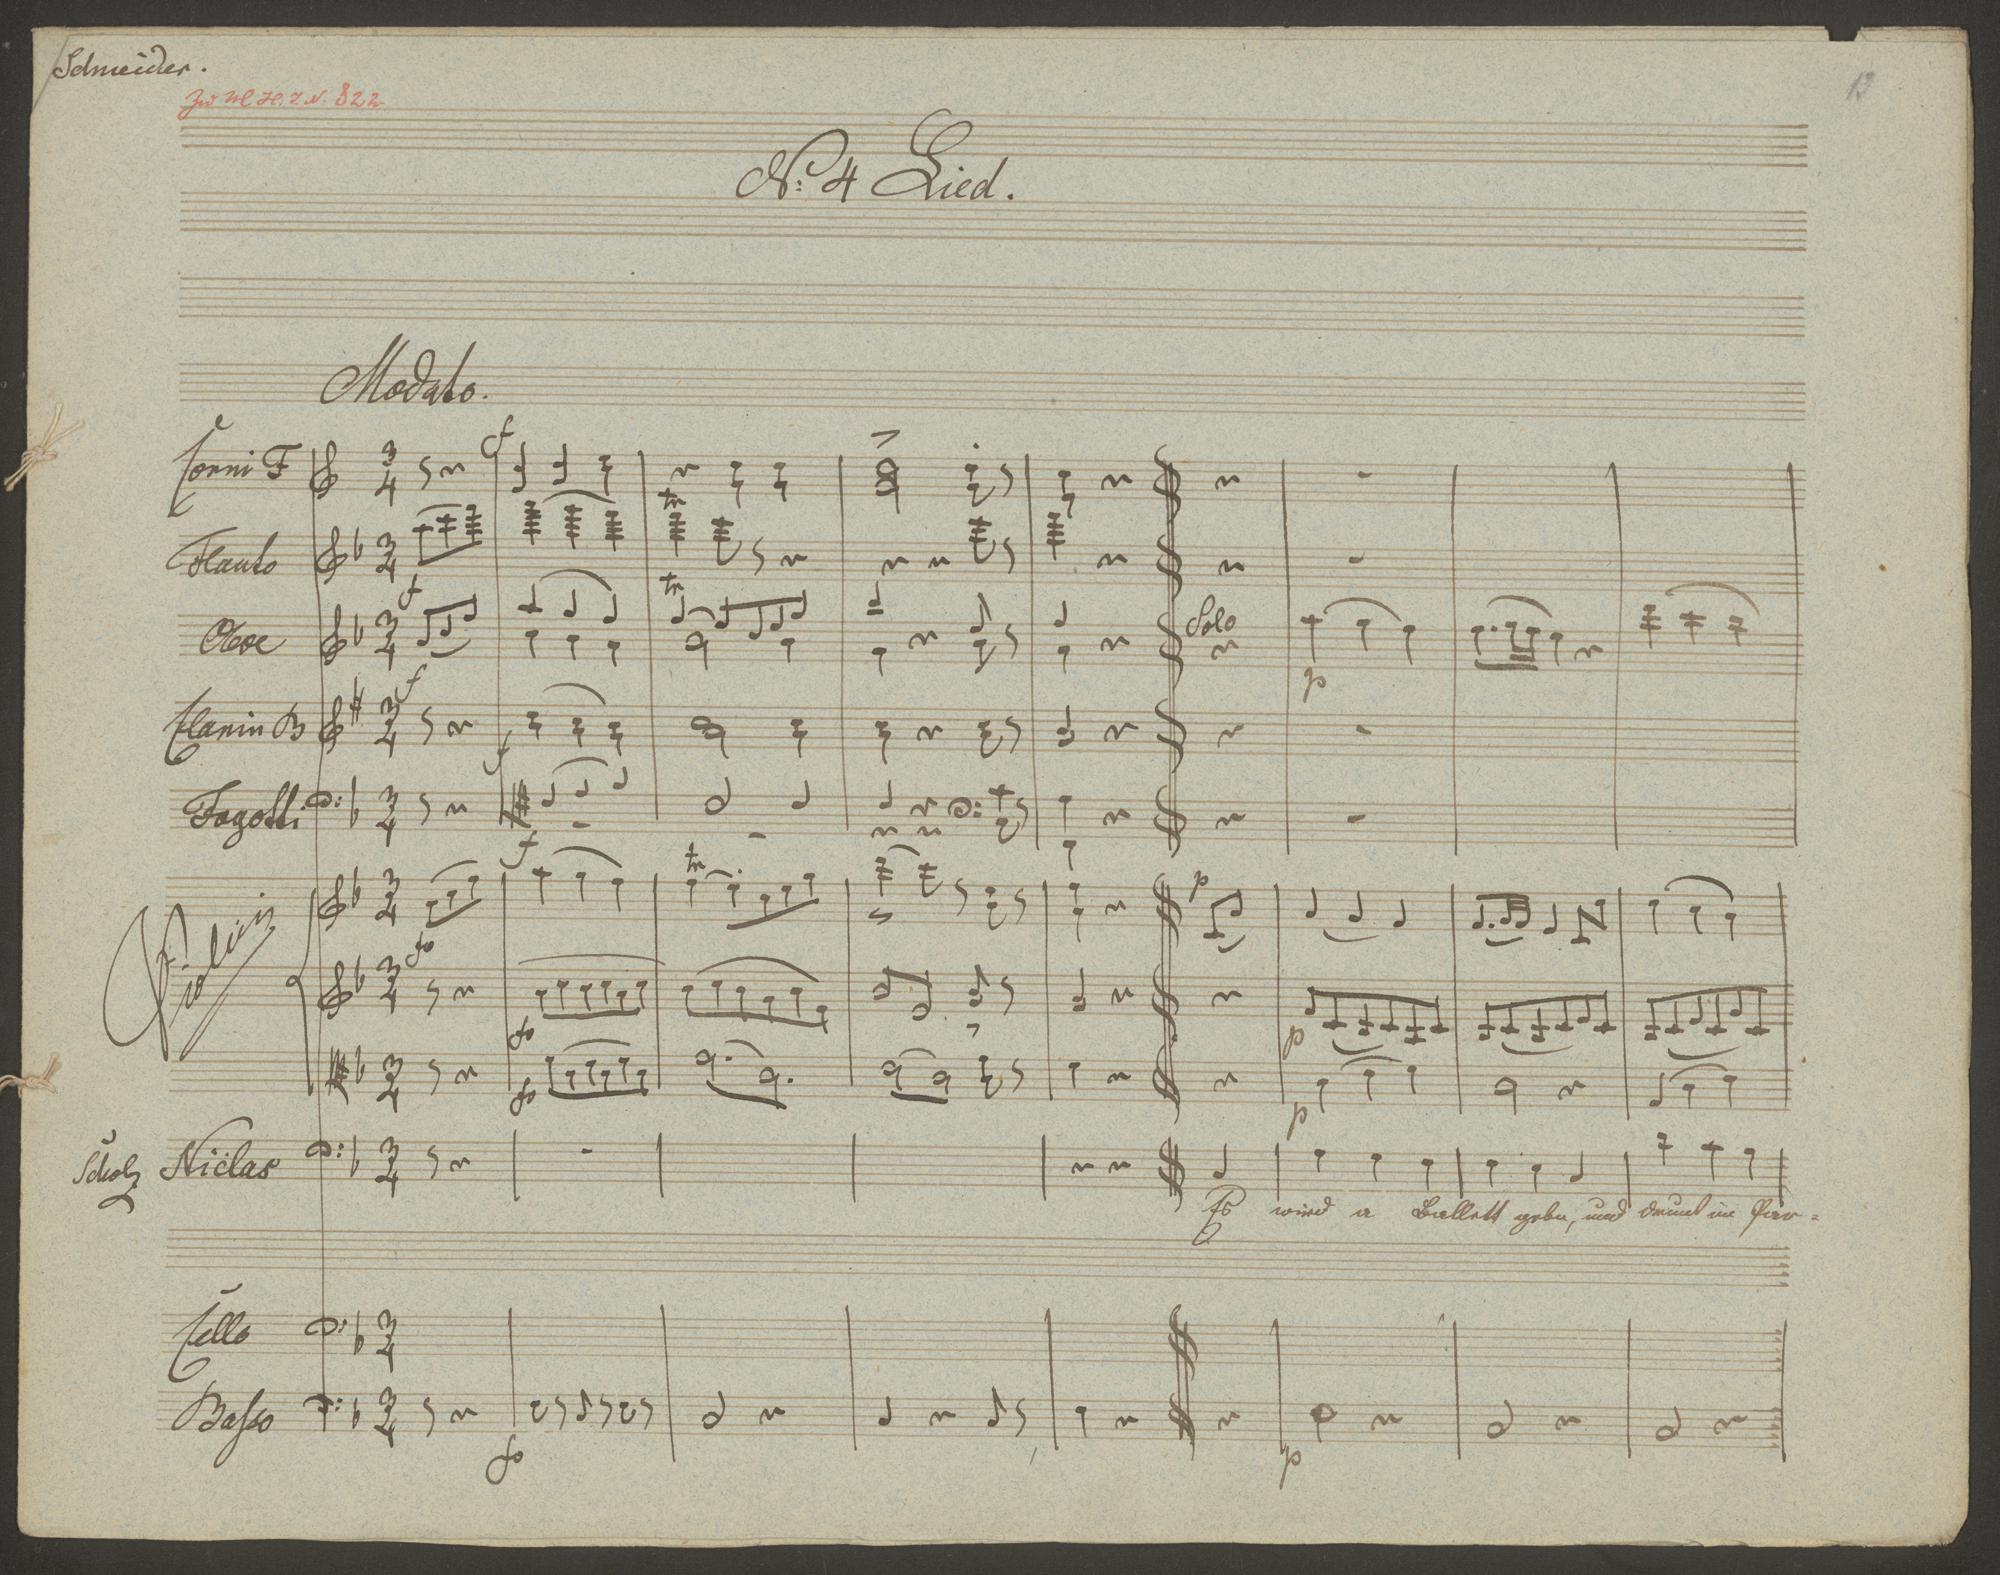 Schneider.
822
13
No: 4 Lied.
Modato.
Corni F
Flauto
Oboe
Solo
Clarin B
Fagotti
Violini
Scholz Niclas
Es wird a Ballett gebn, und drunt im Par-
Cello
Basso